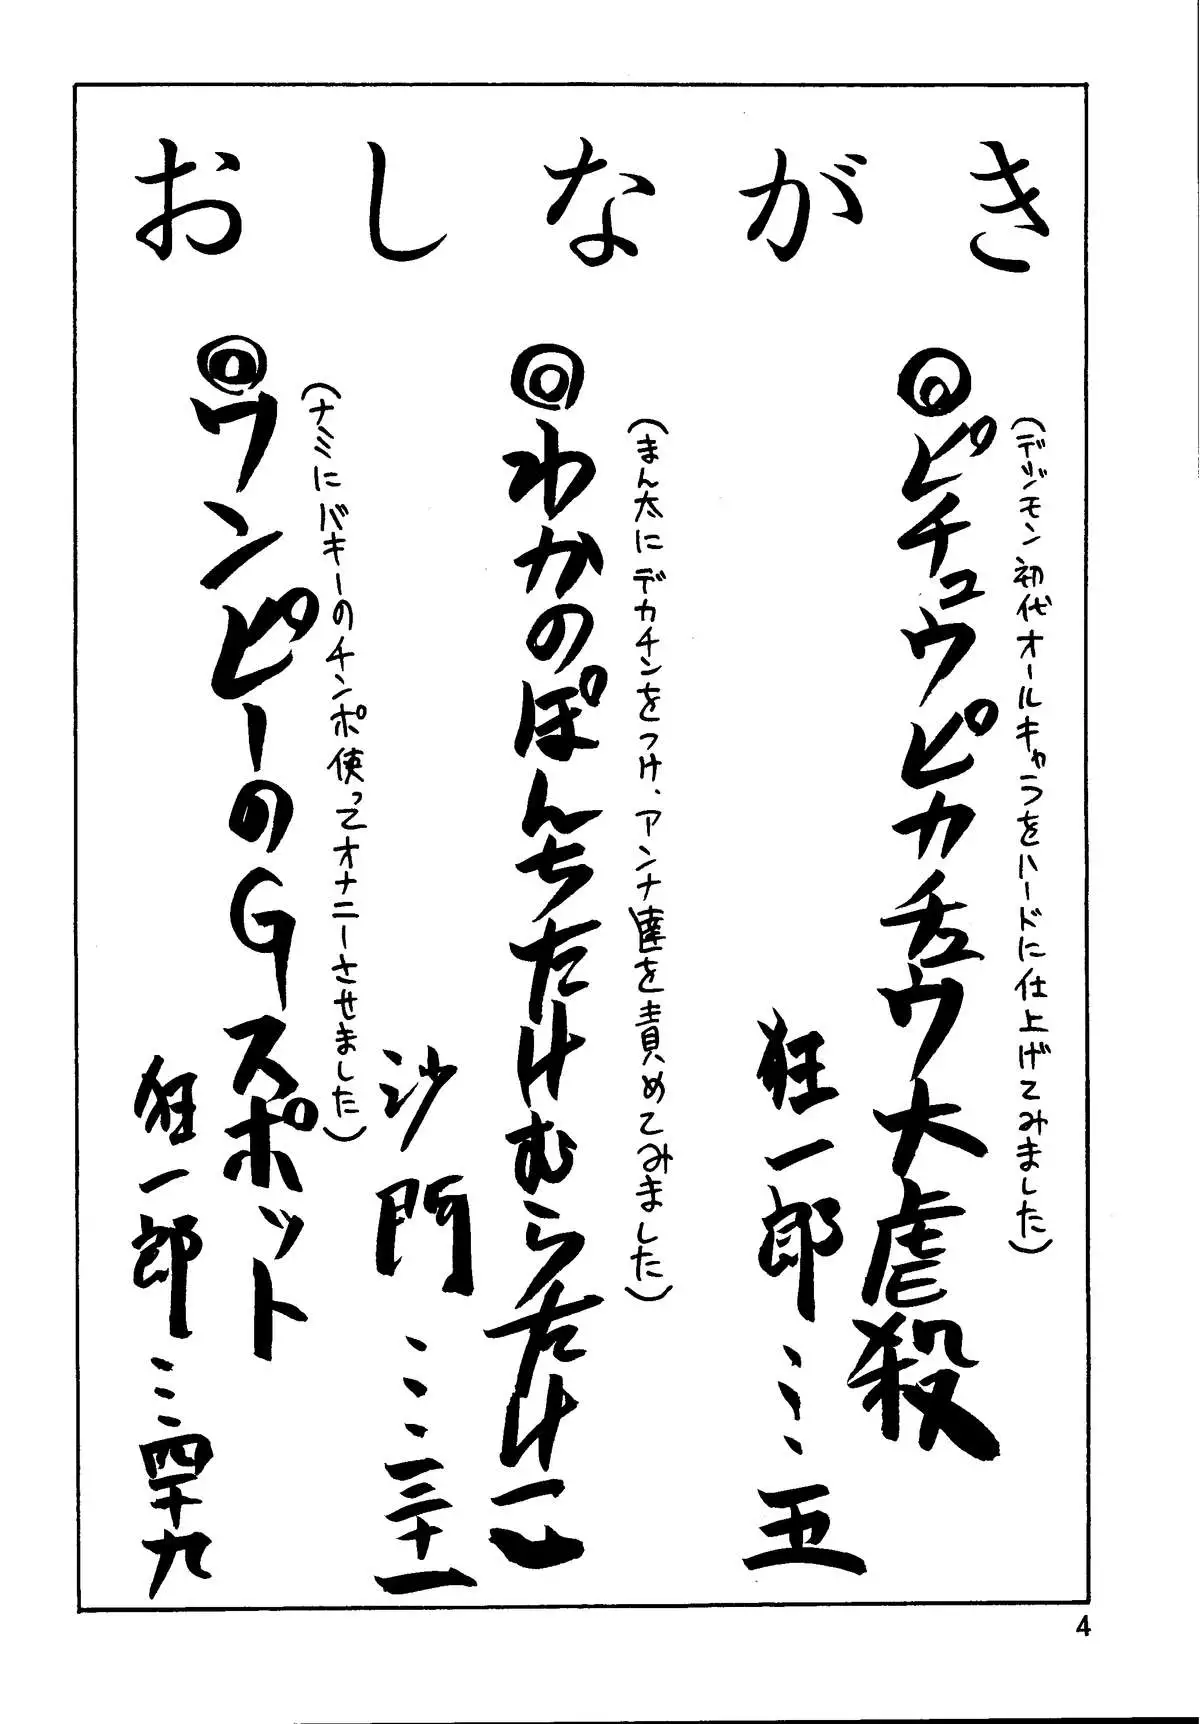 おしながき
(デジモン初代オールキャラをハードに仕上げてみました)
◎ピチュウピカチュウ大虐殺
狂一郎…五
(まん太にデカチンをつけ、アンナ達を責めてみました)
◎わかのぽんちたけむらたけ一
沙門…三十一
(ナミにバキーのチンポ使ってオナニーさせました)
◎ワンピーのGスポット
狂一郎…四十九
4